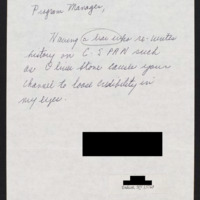 Program Manager,
Having a liar who re-writes
history on C-SPAN such
as Oliver Stone causes your
channel to loose credibility in
my eyes.